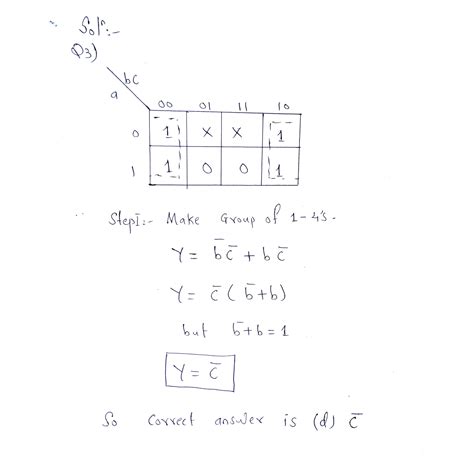 Solⁿ:-
Q3)
bc
a
00 01 11 10
0 1 x x 1
1 1 0 0 1
Step1:- Make Group of 1-4's.
Y = b̅c̅ + bc̅
Y = c̅ (b̅+b)
but b̅+b = 1
Y = c̅
So correct answer is (d) c̅